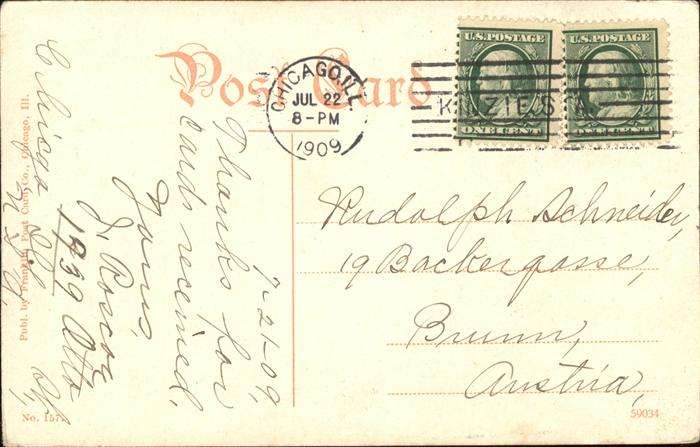 Post Card
CHICAGO, ILL.
JUL 22
8-PM
1909
U.S. POSTAGE
ONE CENT
U.S. POSTAGE
ONE CENT
7-21-09,
Thanks for
cards received,
Yours,
J. Roscoe
1939 Otto
Chicago Ill
U.S.A.
Rudolph Schneider,
19 Backergasse,
Brunn,
Austria,
Publ. by Franklin Post Card Co., Chicago, Ill.
No. 157
59034